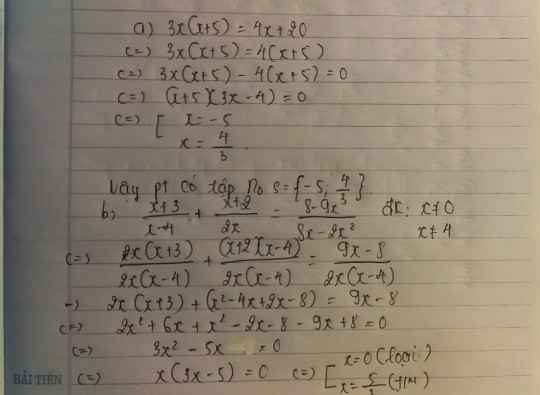 a) 3x(x+5) = 4x+20
<=> 3x(x+5) = 4(x+5)
<=> 3x(x+5) - 4(x+5) = 0
<=> (x+5)(3x-4) = 0
<=> [ x = -5
x = 4/3.
Vậy pt có tập no S = {-5; 4/3}.
b) (x+3)/(x-4) + (x+2)/(2x) = (8-9x)/(8x-2x²) đk: x≠0
x≠4
<=> 2x(x+3)/2x(x-4) + (x+2)(x-4)/2x(x-4) = (9x-8)/2x(x-4)
=> 2x(x+3) + (x²-4x+2x-8) = 9x-8
<=> 2x²+6x+x²-2x-8-9x+8 = 0
<=> 3x² - 5x = 0
<=> x(3x-5) = 0 <=> [ x=0 (loại)
x = 5/3
BÀI TIẾN